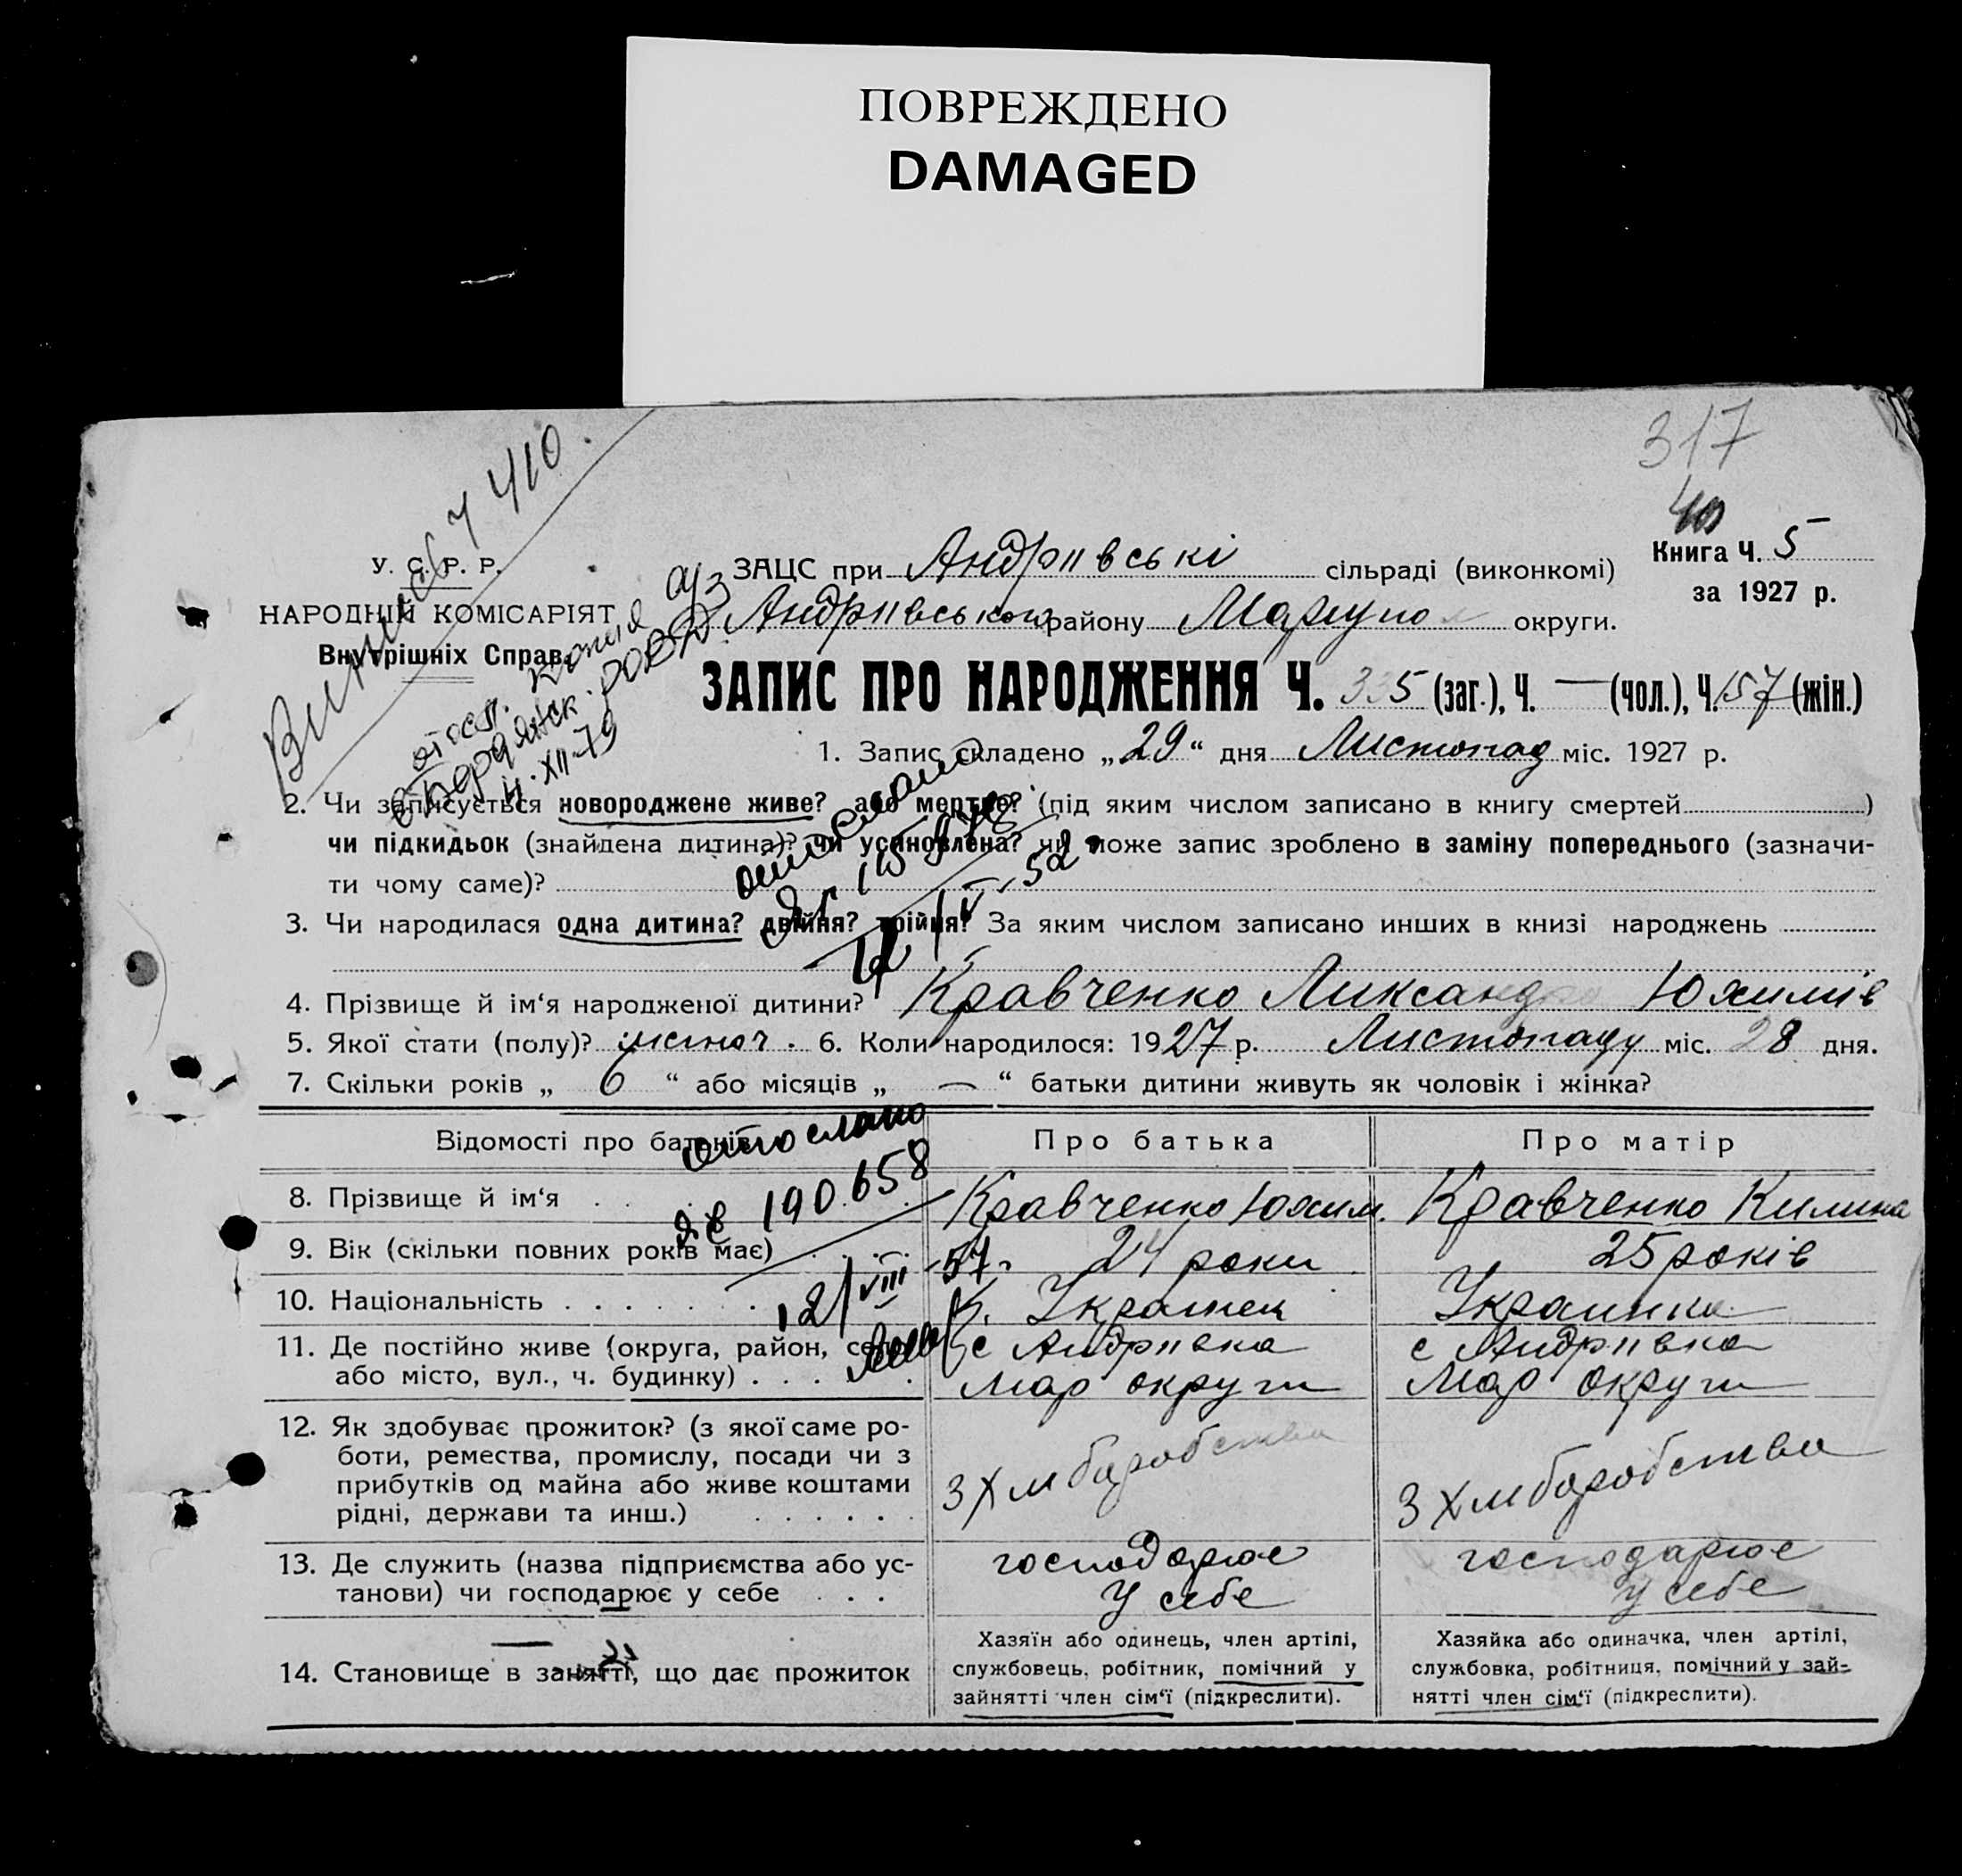 ПОВРЕЖДЕНО
DAMAGED
317
410
У. С. Р. Р.
НАРОДНІЙ КОМІСАРІЯТ
Внутрішніх Справ.
ЗАЦС при Андріівські сільраді (виконкомі)
Книга Ч. 5
за 1927 р.
Андріівського району Маріупол округи.
ЗАПИС ПРО НАРОДЖЕННЯ Ч. 335 (заг.), Ч. — (чол.), Ч. 157 (жін.)
копія
Бердянск.
4.XII-79
1. Запис складено „29“ дня Листопад міс. 1927 р.
2. Чи записується новороджене живе? або мертве? (під яким числом записано в книгу смертей )
чи підкидьок (знайдена дитина)? чи усиновлена? чи може запис зроблено в заміну попереднього (зазначи-
ти чому саме)?
отослано
3. Чи народилася одна дитина? двійня? трійня? За яким числом записано инших в книзі народжень
4. Прізвище й ім‘я народженої дитини? Кравченко Ликсандра Юхимів
5. Якої стати (полу)? жіноч. 6. Коли народилося: 1927 р. Листопаду міс. 28 дня.
7. Скільки років „ 6 “ або місяців „ — “ батьки дитини живуть як чоловік і жінка?
Відомості про батьків
Про батька
Про матір
отослано
190658
12/VIII-57
8. Прізвище й ім‘я Кравченко Юхим. Кравченко Килина
9. Вік (скільки повних років має) 24 роки 25 років
10. Національність Украінец Украінка
11. Де постійно живе (округа, район, село с Андріівка с Андріівка
або місто, вул., ч. будинку) Мар округи Мар округи
12. Як здобуває прожиток? (з якої саме ро-
боти, ремества, промислу, посади чи з
прибутків од майна або живе коштами
рідні, держави та инш.)
З хліборобства З хліборобства
13. Де служить (назва підприємства або ус- господарює господарює
танови) чи господарює у себе у себе у себе
14. Становище в занятті, що дає прожиток
Хазяїн або одинець, член артілі,
службовець, робітник, помічний у
зайнятті член сім‘ї (підкреслити).
Хазяйка або одиначка, член артілі,
службовка, робітниця, помічний у зай-
нятті член сім‘ї (підкреслити).